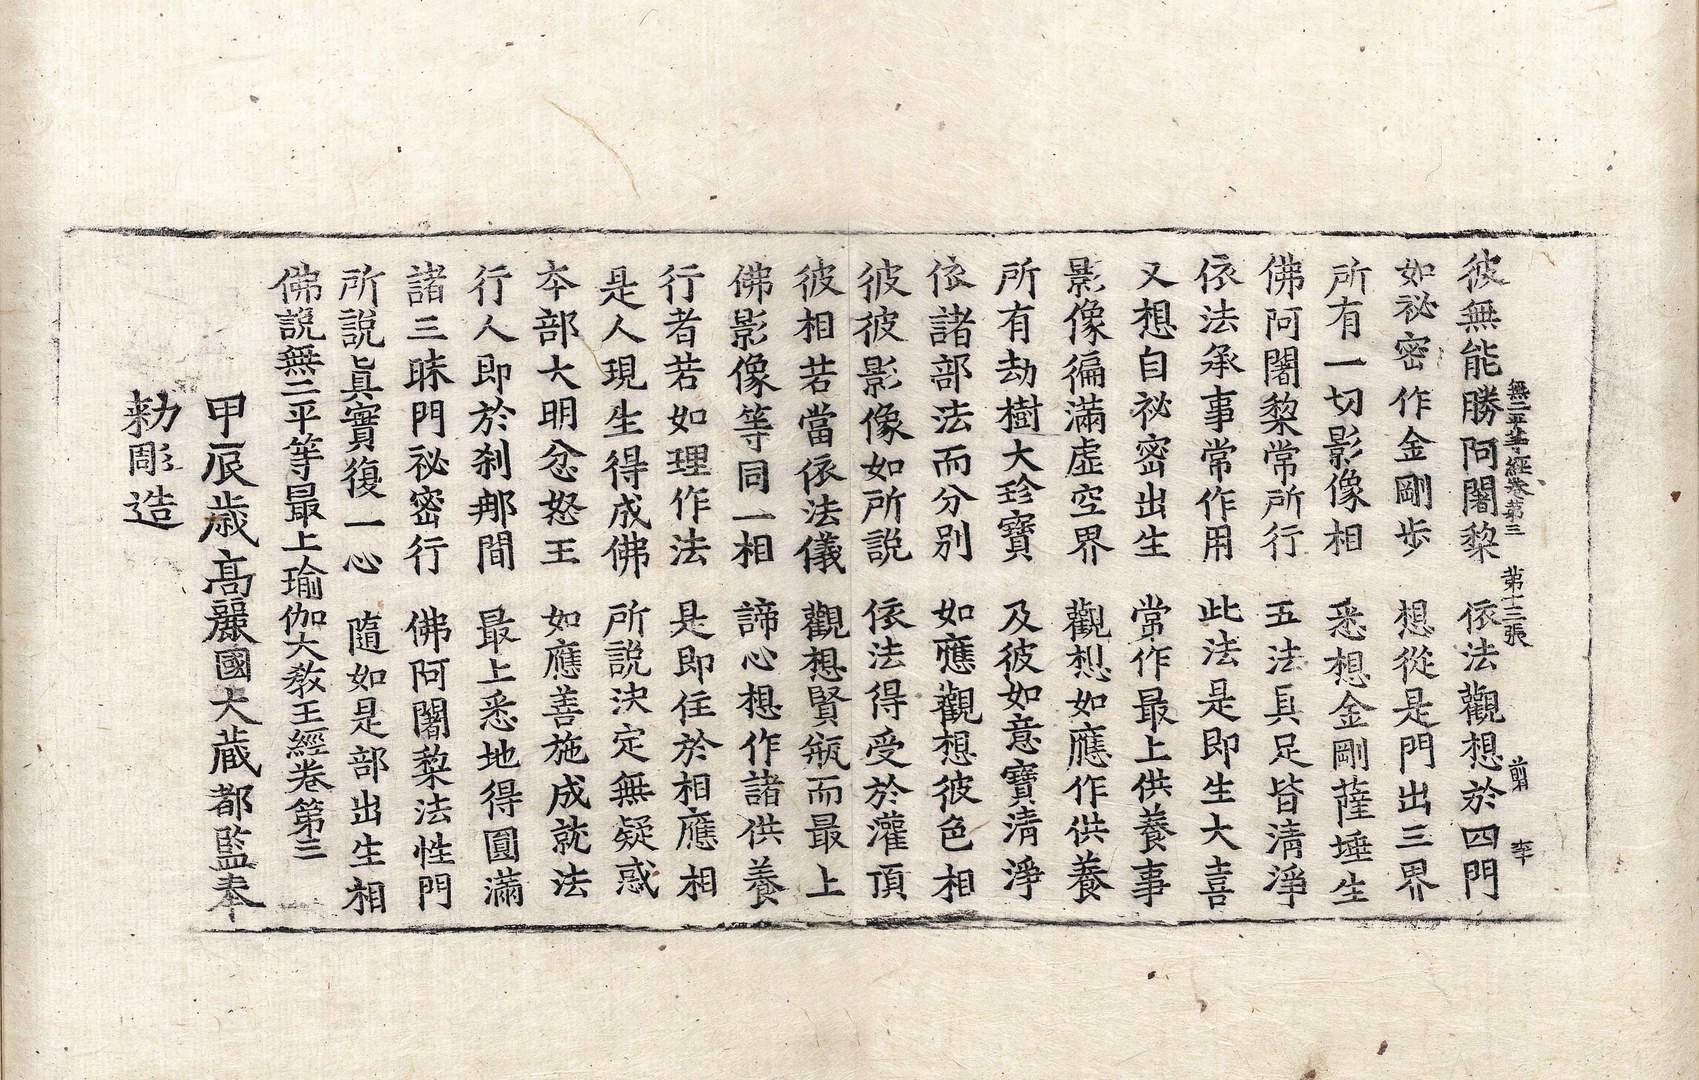 無二平等經卷第三 第十三張 剪 李
彼無能勝阿闍黎 依法觀想於四門
如祕密作金剛步 想從是門出三界
所有一切影像相 悉想金剛薩埵生
佛阿闍黎常所行 五法具足皆清淨
依法承事常作用 此法是即生大喜
又想自祕密出生 常作最上供養事
影像徧滿虛空界 觀想如應作供養
所有劫樹大珍寶 及彼如意寶清淨
依諸部法而分別 如應觀想彼色相
彼彼影像如所說 依法得受於灌頂
彼相若當依法儀 觀想賢瓶而最上
佛影像等同一相 諦心想作諸供養
行者若如理作法 是即住於相應相
是人現生得成佛 所說決定無疑惑
本部大明忿怒王 如應善施成就法
行人即於剎那間 最上悉地得圓滿
諸三昧門祕密行 佛阿闍黎法性門
所說眞實復一心 隨如是部出生相
佛說無二平等最上瑜伽大敎王經卷第三
甲辰歲高麗國大藏都監奉
勑彫造